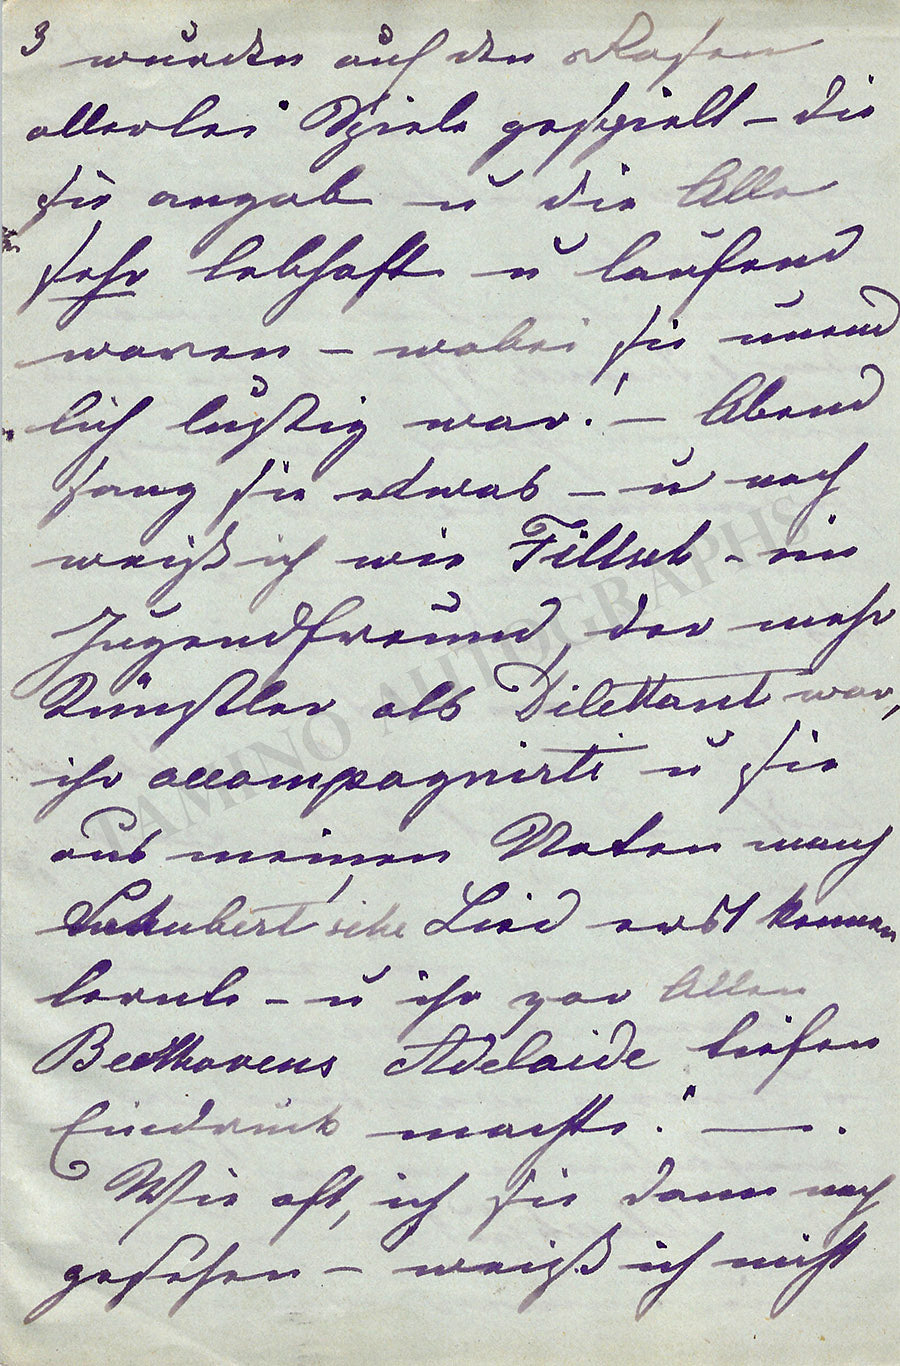 3
wurden auf den Rasen
allerlei Spiele gespielt – die
sie angab u die Alle
sehr lebhaft u laufend
waren – wobei sie unend
lich lustig war! – Abend
sang sie etwas – u noch
weiß ich wie Filtsch – ein
Jugendfreund, der mehr
Künstler als Dilettant war,
ihr accompagnirte u sie
aus meinen Noten manch
Schubert'sche Lied erst kennen
lernte – u ihr vor Allen
Beethovens Adelaide tiefen
Eindruck machte! – .
Wie oft, ich sie dann noch
gesehen – weiß ich nicht
TAMINO AUTOGRAPHS